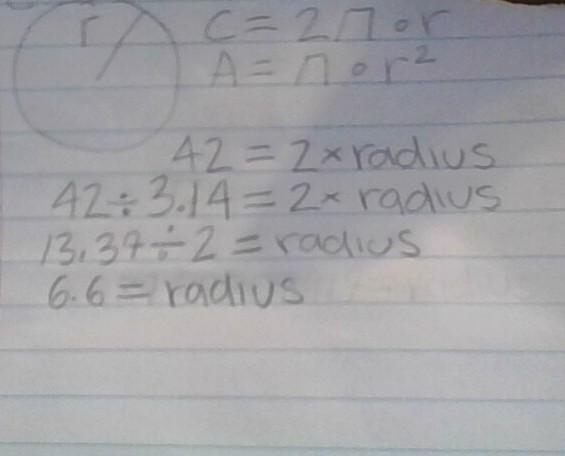 r
C = 2π∘r
A = π∘r²
42 = 2×radius
42÷3.14 = 2× radius
13.37÷2 = radius
6.6 = radius